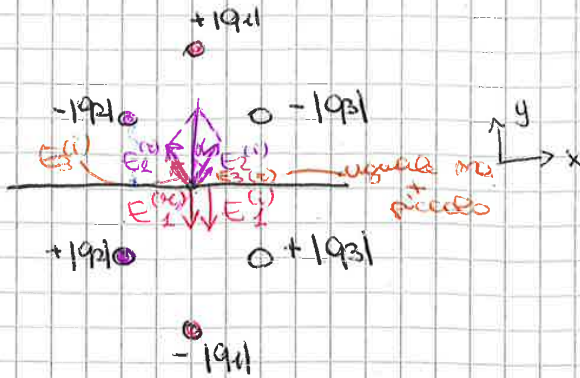 +|q1|
-|q2|
-|q3|
y
x
E3(i)
E2(r)
α
E2(i)
E3(r)
uguale ma
+
piccolo
E1(r)
E1(i)
+|q2|
+|q3|
-|q1|